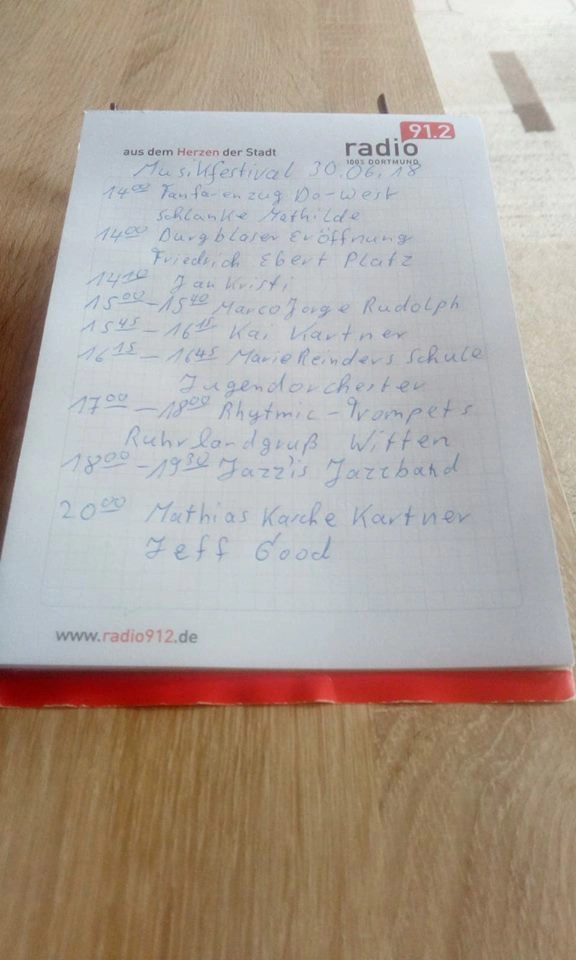 aus dem Herzen der Stadt
radio 91.2
100% DORTMUND
Musikfestival 30.06.18
14 00 Fanfarenzug Do-West
Schlanke Mathilde
14 00 Burgbläser Eröffnung
Friedrich Ebert Platz
14 10 Jan Kristi
15 00 - 15 40 Marco Jorge Rudolph
15 45 - 16 15 Kai Kartner
16 15 - 16 45 Marie Reinders Schule
Jugendorchester
17 00 - 18 00 Rhytmic-Trompets
Ruhrlandgruß Witten
18 00 - 19 30 Jazz'is Jazzband
20 00 Mathias Karche Kartner
Jeff Good
www.radio912.de